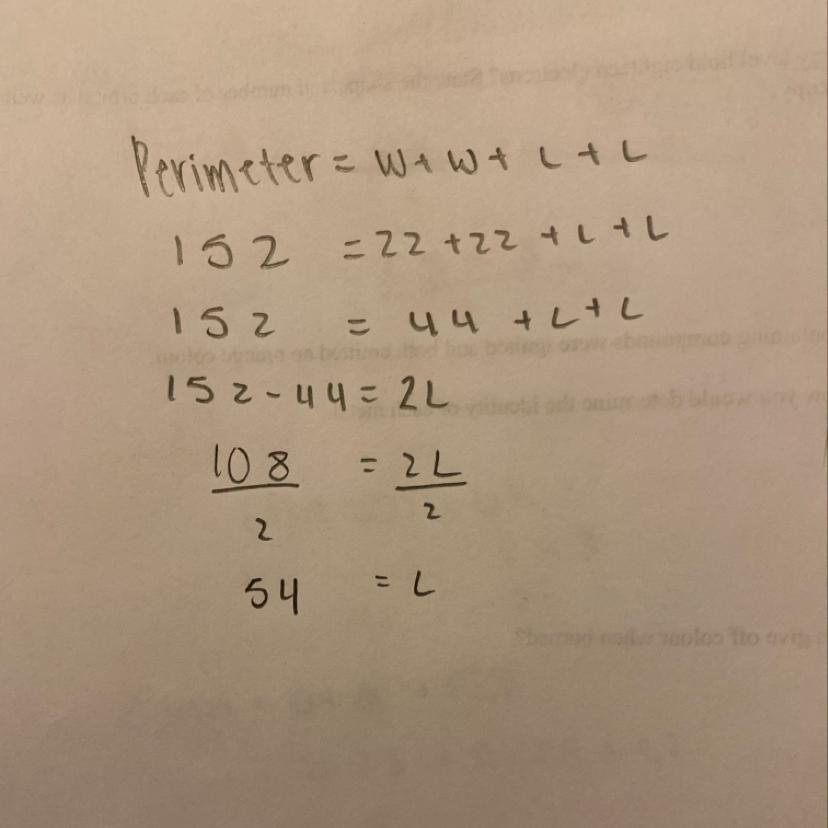 Perimeter = W + W + L + L
152 = 22 + 22 + L + L
152 = 44 + L + L
152 - 44 = 2L
108 = 2L
2 2
54 = L